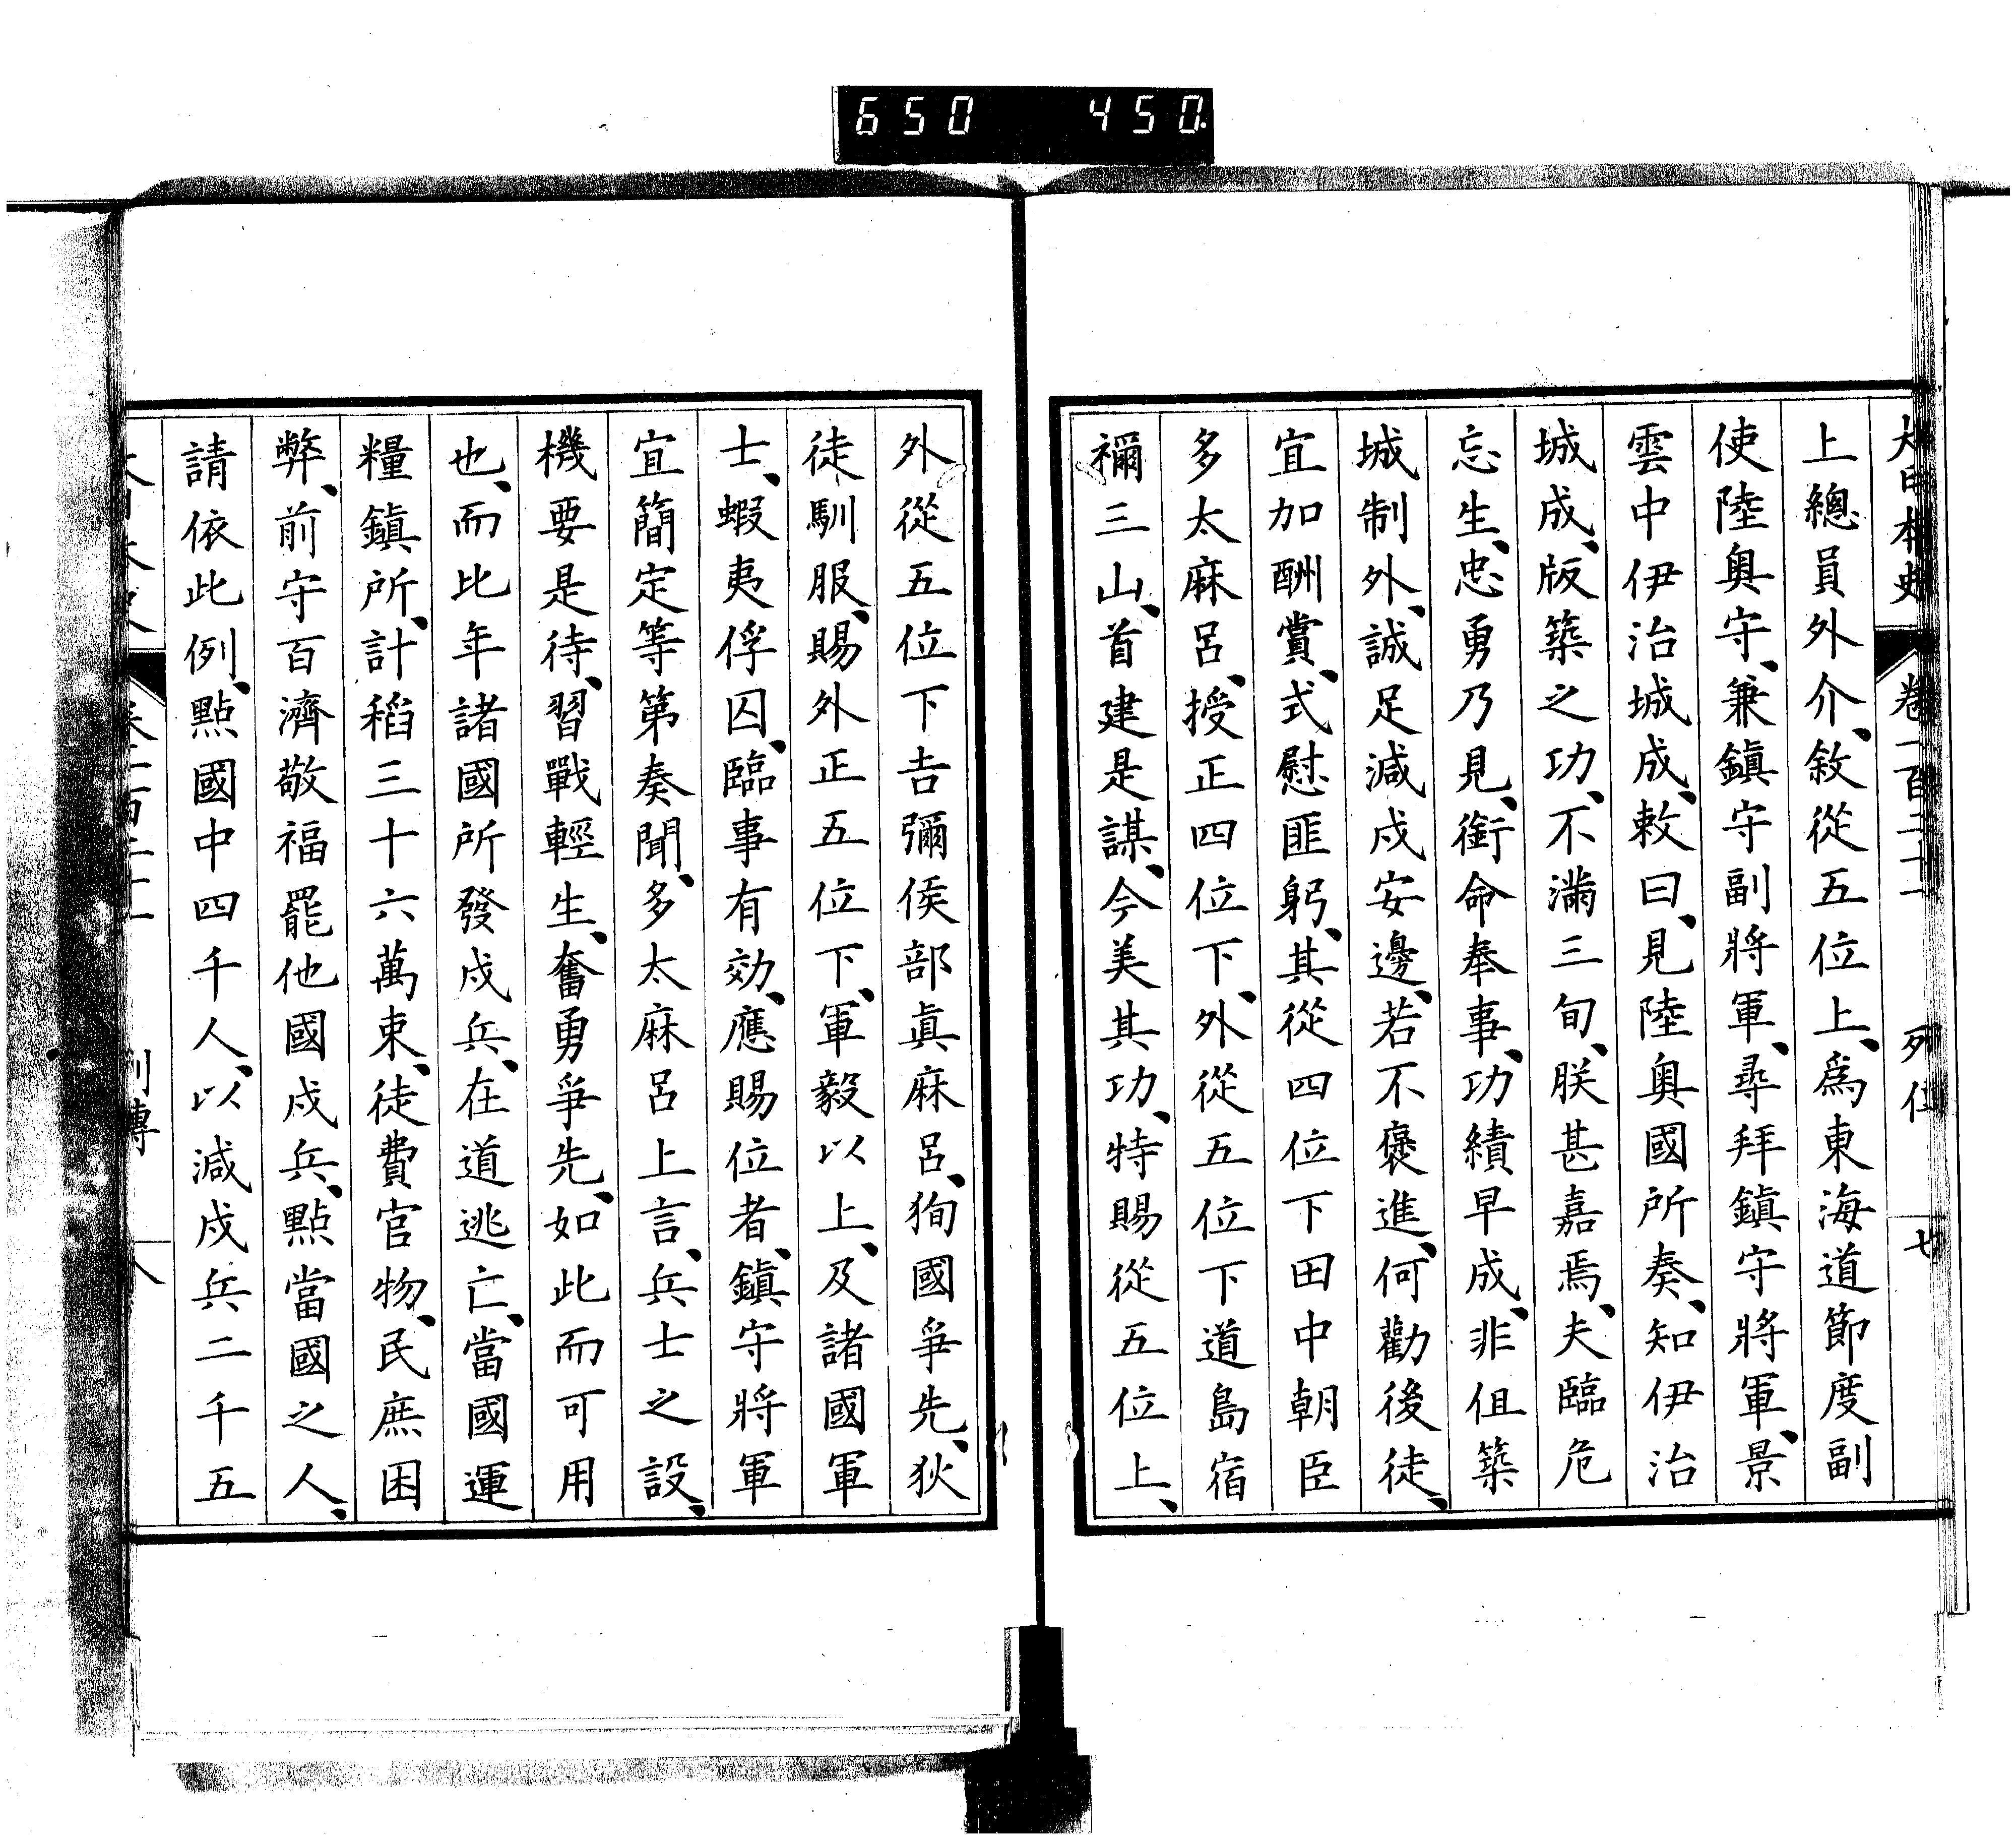 650 450
大日本史 卷一百二十一 列傳 七
上總員外介、敘從五位上、爲東海道節度副
使陸奧守、兼鎭守副將軍、尋拜鎭守將軍、景
雲中伊治城成、敕曰、見陸奧國所奏、知伊治
城成、版築之功、不滿三旬、朕甚嘉焉、夫臨危
忘生、忠勇乃見、銜命奉事、功績早成、非但築
城制外、誠足減戍安邊、若不襃進、何勸後徒、
宜加酬賞、式慰匪躬、其從四位下田中朝臣
多太麻呂、授正四位下、外從五位下道島宿
禰三山、首建是謀、今美其功、特賜從五位上、
外從五位下吉彌侯部眞麻呂、狥國爭先、狄
徒馴服、賜外正五位下、軍毅以上、及諸國軍
士、蝦夷俘囚、臨事有効、應賜位者、鎭守將軍
宜簡定等第奏聞、多太麻呂上言、兵士之設、
機要是待、習戰輕生、奮勇爭先、如此而可用
也、而比年諸國所發戍兵、在道逃亡、當國運
糧鎭所、計稻三十六萬束、徒費官物、民庶困
弊、前守百濟敬福罷他國戍兵、點當國之人、
請依此例、點國中四千人、以減戍兵二千五
列傳 八